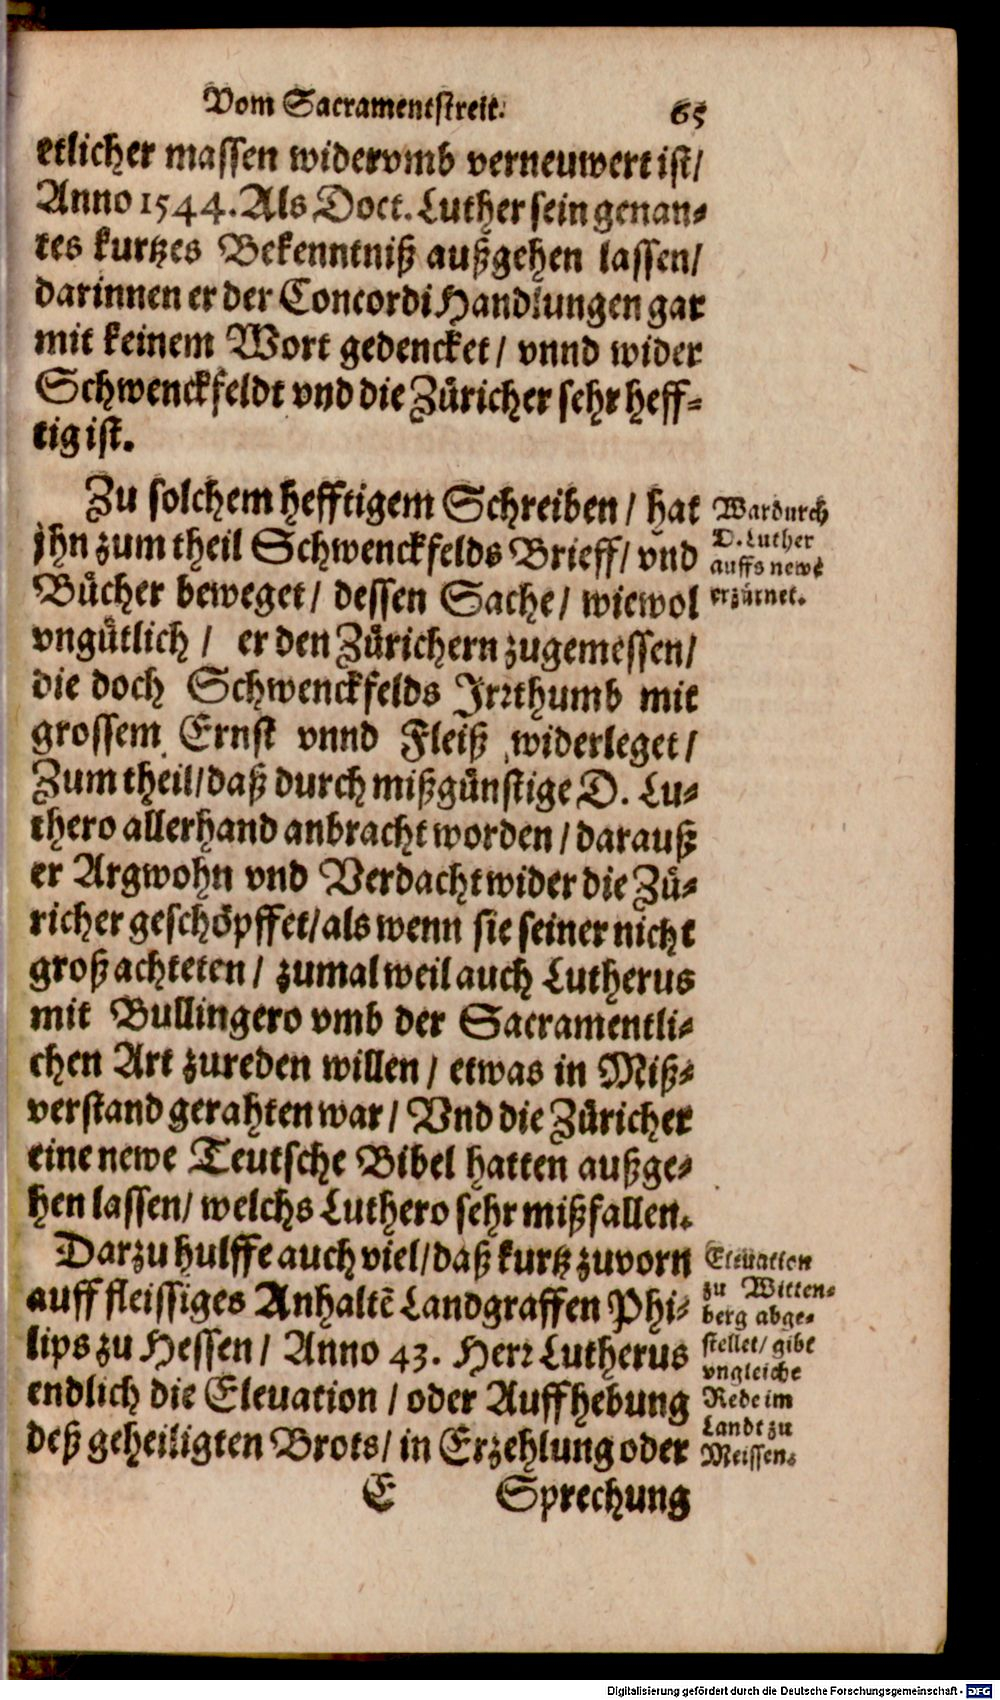 Vom Sacramentstreit. 65
etlicher massen widervmb verneuwert ist/
Anno 1544. Als Doct. Luther sein genan-
tes kurtzes Bekenntniß außgehen lassen/
darinnen er der Concordi Handlungen gar
mit keinem Wort gedencket / vnnd wider
Schwenckfeldt vnd die Zůricher sehr heff-
tig ist.
Zu solchem hefftigem Schreiben / hat
jhn zum theil Schwenckfelds Brieff / vnd
Bůcher beweget / dessen Sache / wiewol
vngůtlich / er den Zůrichern zugemessen /
die doch Schwenckfelds Irrthumb mit
grossem Ernst vnnd Fleiß widerleget /
Zum theil / daß durch mißgůnstige D. Lu-
thero allerhand anbracht worden / darauß
er Argwohn vnd Verdacht wider die Zů-
richer geschöpffet / als wenn sie seiner nicht
groß achteten / zumal weil auch Lutherus
mit Bullingero vmb der Sacramentli-
chen Art zureden willen / etwas in Miß-
verstand gerahten war / Vnd die Zůricher
eine newe Teutsche Bibel hatten außge-
hen lassen / welchs Luthero sehr mißfallen.
Darzu hulffe auch viel / daß kurtz zuvorn
auff fleissiges Anhaltẽ Landgraffen Phi-
lips zu Hessen / Anno 43. Herr Lutherus
endlich die Elevation / oder Auffhebung
deß geheiligten Brots / in Erzehlung oder
E Sprechung
Wardurch
D. Luther
auffs newe
erzůrnet.
Elevation
zu Witten-
berg abge-
stellet / gibt
vngleiche
Rede im
Landt zu
Meissen.
Digitalisierung gefördert durch die Deutsche Forschungsgemeinschaft - DFG